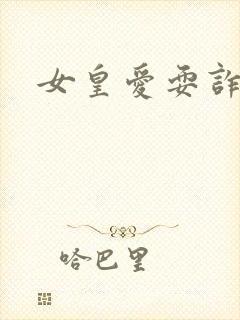 女皇愛耍詐
哈巴里